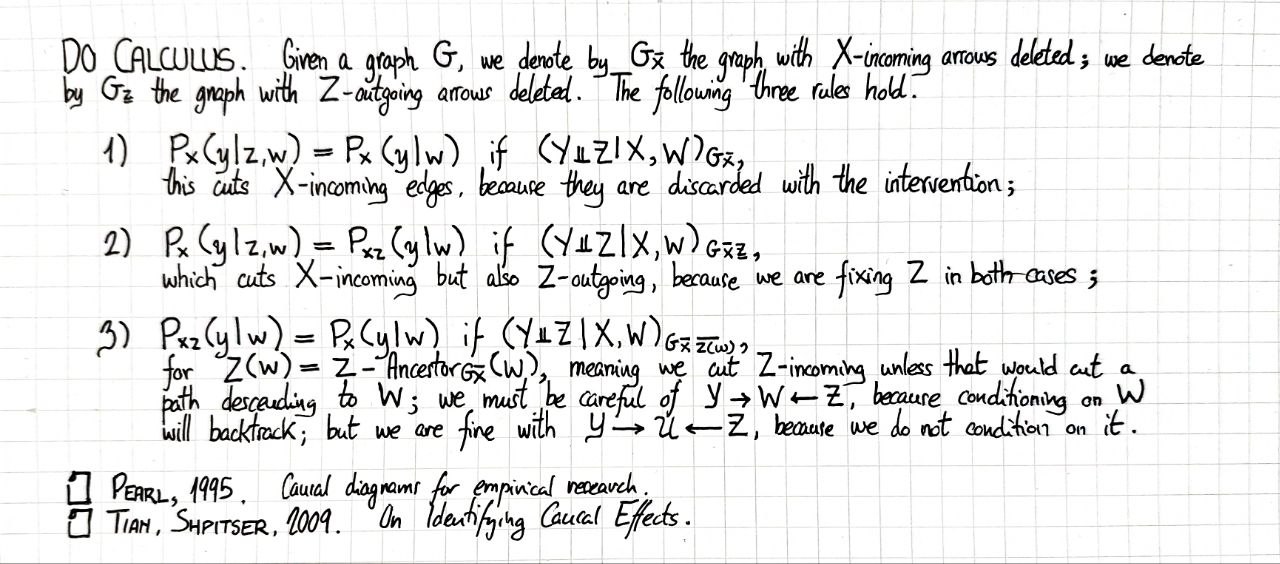 DO CALCULUS. Given a graph G, we denote by G_X̄ the graph with X-incoming arrows deleted; we denote
by G_Z̲ the graph with Z-outgoing arrows deleted. The following three rules hold.
1) Pₓ(y|z,w) = Pₓ(y|w) if (Y⫫Z|X,W)_G_X̄,
this cuts X-incoming edges, because they are discarded with the intervention;
2) Pₓ(y|z,w) = P_xz(y|w) if (Y⫫Z|X,W)_G_X̄Z̲,
which cuts X-incoming but also Z-outgoing, because we are fixing Z in both cases;
3) P_xz(y|w) = Pₓ(y|w) if (Y⫫Z|X,W)_G_X̄ Z̅(̅w̅)̅,
for Z(W) = Z - Ancestor_G_X̄(W), meaning we cut Z-incoming unless that would cut a
path descending to W; we must be careful of Y → W ← Z, because conditioning on W
will backtrack; but we are fine with Y → U ← Z, because we do not condition on it.
PEARL, 1995. Causal diagrams for empirical research.
TIAN, SHPITSER, 2009. On Identifying Causal Effects.